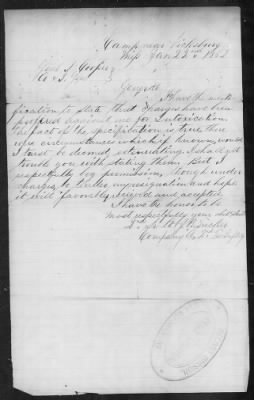 Camp near Vicksburg
Miss Jany 22nd 1863
Genl S. Cooper
A & I. Gen
General
I have the morti-
fication to state that charges have been
preferred against me for Intoxication.
The fact of the specification is true, there
were circumstances which if known, would
I trust be deemed extenuating. I shall not
trouble you with stating them. But I
respectfully beg permission, though under
charges to tender my resignation and hope
it will favorably received and accepted
I have the honor to be
Most respectfully your obt Servt
Company